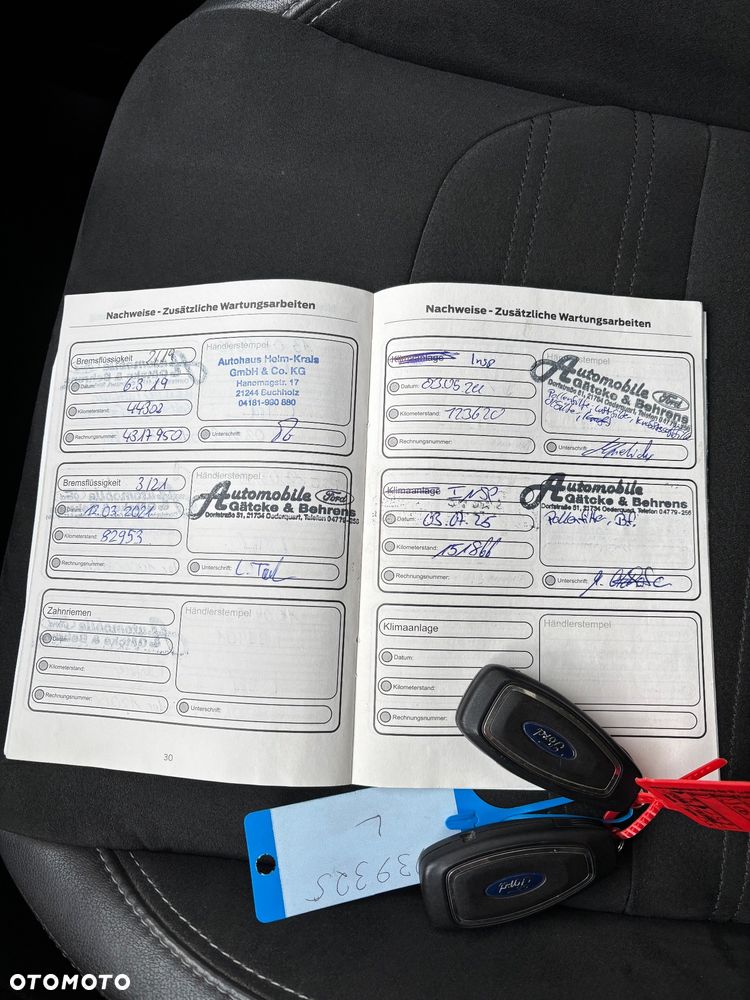 Nachweise - Zusätzliche Wartungsarbeiten
Bremsflüssigkeit 3/19
Datum: 6.3.19
Kilometerstand: 44302
Rechnungsnummer: 4317950
Händlerstempel
Autohaus Holm-Krais
GmbH & Co. KG
Hanomagstr. 17
21244 Buchholz
04181-990 880
Unterschrift:
Bremsflüssigkeit 3/21
Datum: 12.03.2021
Kilometerstand: 82953
Rechnungsnummer:
Händlerstempel
Automobile Ford
Gätcke & Behrens
Dorfstraße 51, 21734 Oederquart, Telefon 04779-256
Unterschrift:
Zahnriemen
Datum:
Kilometerstand:
Rechnungsnummer:
Händlerstempel
Unterschrift:
30
Nachweise - Zusätzliche Wartungsarbeiten
Klimaanlage Insp
Datum:
Kilometerstand: 123620
Rechnungsnummer:
Händlerstempel
Automobile Ford
Gätcke & Behrens
Dorfstraße 51, 21734
Pollenfilter
Unterschrift:
Klimaanlage INSP
Datum: 03.07.25
Kilometerstand: 151866
Rechnungsnummer:
Händlerstempel
Automobile Ford
Gätcke & Behrens
Dorfstraße 51, 21734 Oederquart, Telefon 04779-256
Pollenfilter, Bf.
Unterschrift:
Klimaanlage
Datum:
Kilometerstand:
Rechnungsnummer:
Händlerstempel
Ford
Ford
39325
L
OTOMOTO